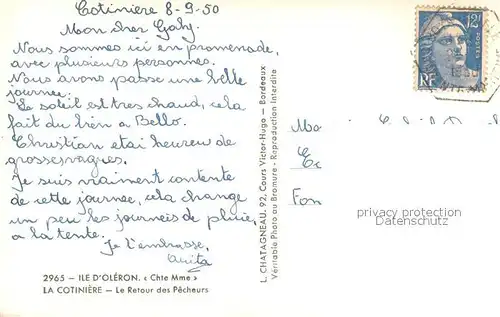 Cotinière 8-9.50
Mon cher Gaby.
Nous sommes ici en promenade,
avec plusieurs personnes.
Nous avons passe une belle
journee.
Le soleil est tres chaud, cela
fait du bien a Bello.
Christian etai heureu de
grosses vagues.
Je suis vraiment contente
de cette journee, cela change
un peu les journeis de pluie,
a la tente.
Je t'embrasse,
Anita
2965 — ILE D'OLÉRON. « Chte Mme »
LA COTINIÈRE — Le Retour des Pêcheurs
L. CHATAGNEAU, 92, Cours Victor-Hugo — Bordeaux
Véritable Photo au Bromure - Reproduction Interdite
12F
POSTES
RF
1950
Ma
Ec
Fon
privacy protection
Datenschutz